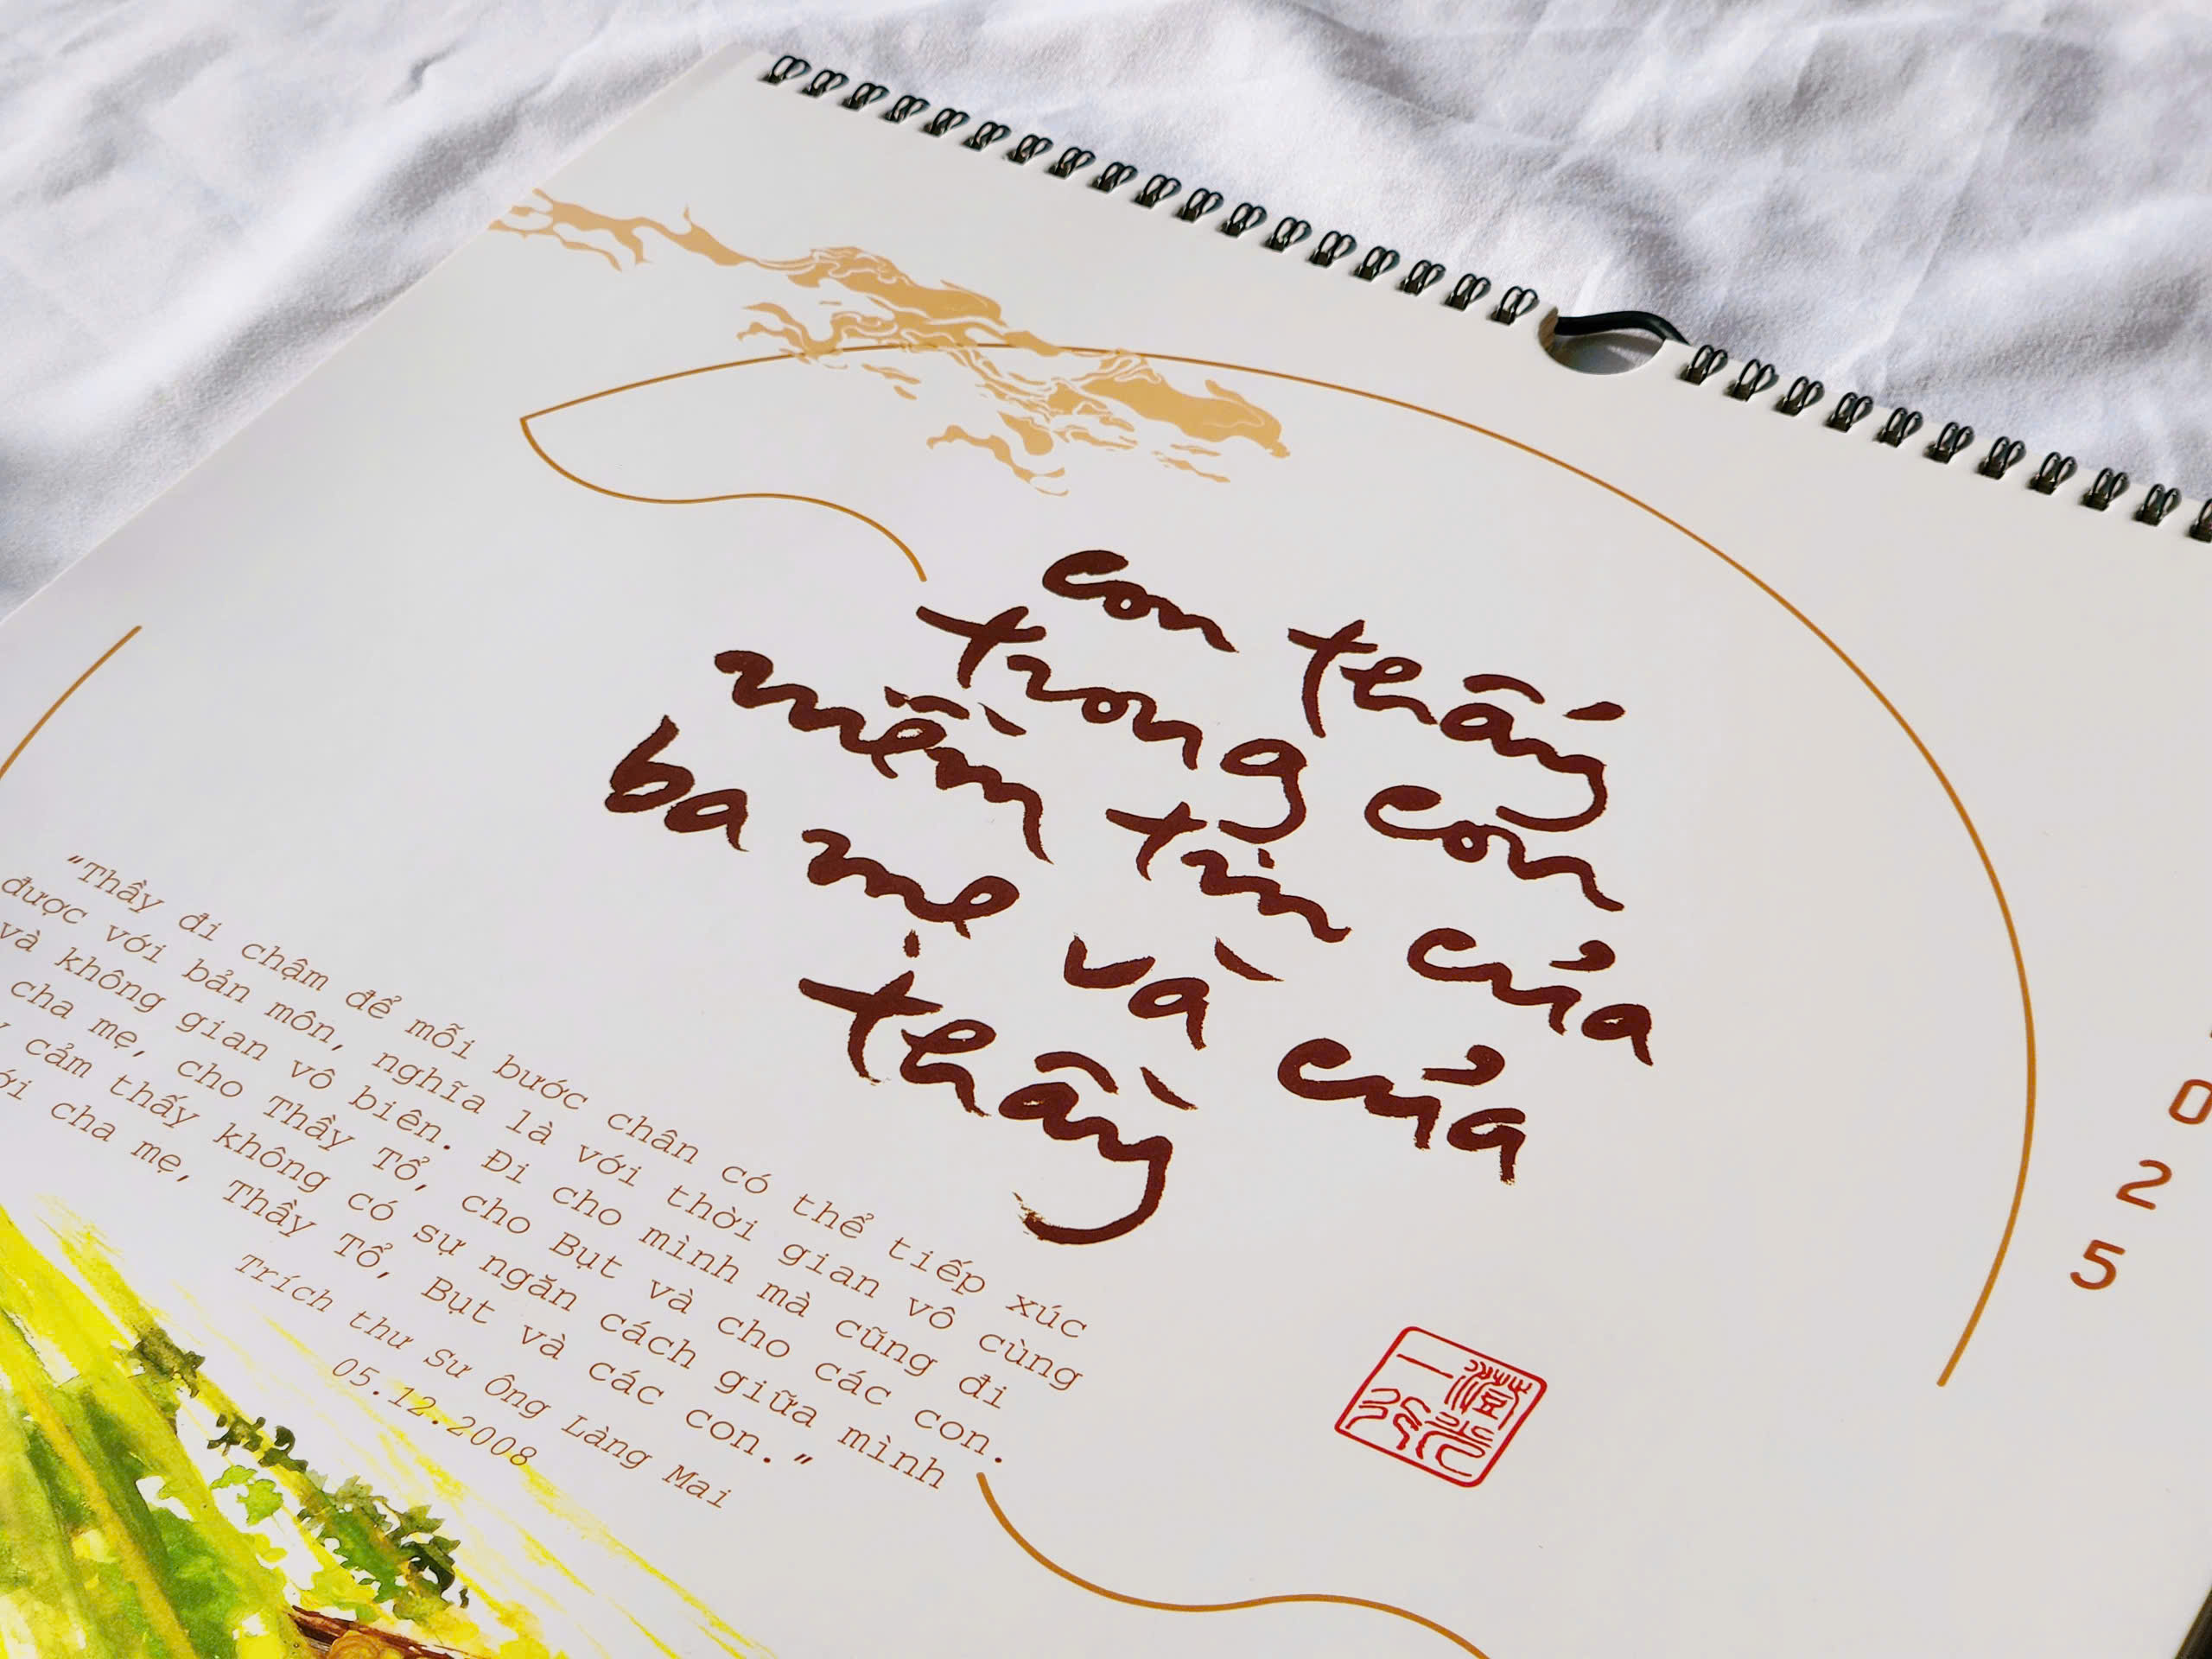 con thấy
trong con
niềm tin của
ba mẹ và của
thầy
"Thầy đi chậm để mỗi bước chân có thể tiếp xúc
được với bản môn, nghĩa là với thời gian vô cùng
và không gian vô biên. Đi cho mình mà cũng đi
cha mẹ, cho Thầy Tổ, cho Bụt và cho các con.
cảm thấy không có sự ngăn cách giữa mình
cha mẹ, Thầy Tổ, Bụt và các con."
Trích thư Sư Ông Làng Mai
05.12.2008
0
2
5